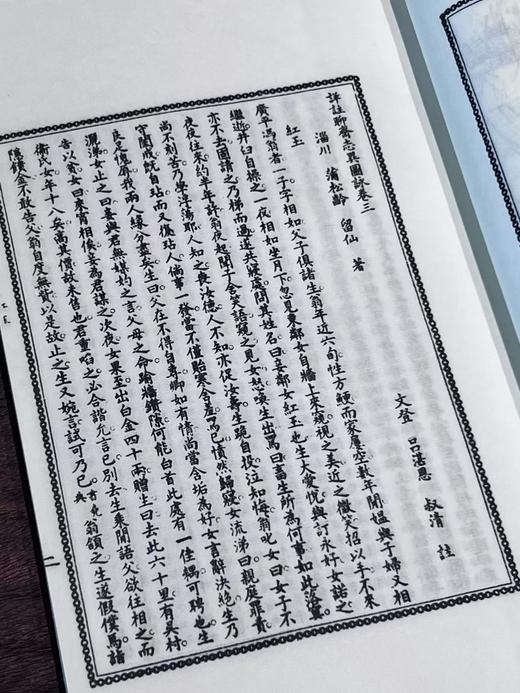 詳註聊齋志異圖詠卷三
淄川 蒲松齡 留仙 著
文登 呂湛恩 叔清 註
紅玉
廣平馮翁者一子字相如父子俱諸生翁年近六旬性方鯁而家屢空數年間媼與子婦又相
繼逝井臼自操之一夜相如坐月下忽見東鄰女自牆上來窺視之美近之微笑招以手不來
亦不去固請之乃梯而過遂共寢處問其姓名曰妾鄰女紅玉也生大愛悅與訂永好女諾之
夜夜往來約半年許翁夜起聞子舍笑語窺之見女怒喚生出罵曰畜生所為何事如此落寞
尚不刻苦乃學浮蕩耶人知之喪汝德人不知亦促汝壽生跪自投泣知悔翁叱女曰女子不
守閨戒既自玷而又以玷人倘事一發當不僅貽寒舍羞罵已憤然歸寢女流涕曰親庭罪責
良足愧辱我兩人緣分盡矣生曰父在不得自專卿如有情尚當含垢為好女言辭決絕生乃
灑涕女止之曰妾與君無媒妁之言父母之命踰牆鑽隙何能白首此處有一佳耦可聘也生
告以貧女曰來宵相俟妾為君謀之次夜女果至出白金四十兩贈生曰去此六十里有吳村
衛氏女年十八矣高其價故未售也君重啗之必合諧允言已別去生乘間語父欲往相之而
隱饋金不敢告父翁自度無貲以是故止之生又婉言試可乃已翁頷之生遂假僕馬詣
二